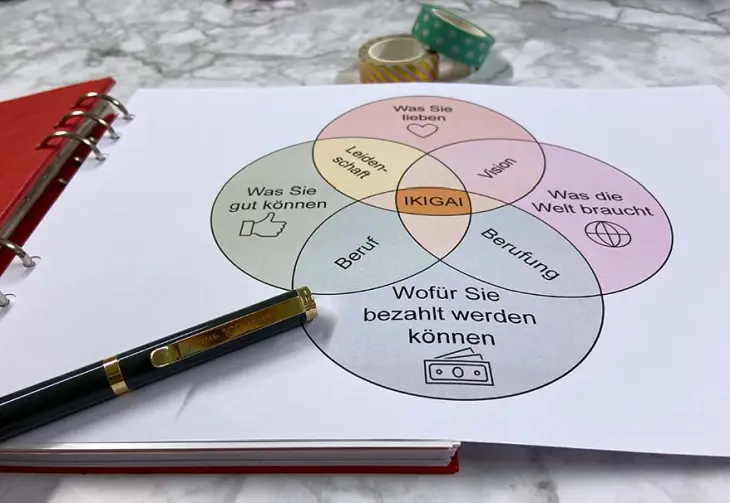 Was Sie
lieben
Leiden-
schaft
Vision
Was Sie
gut können
IKIGAI
Was die
Welt braucht
Beruf
Berufung
Wofür Sie
bezahlt werden
können